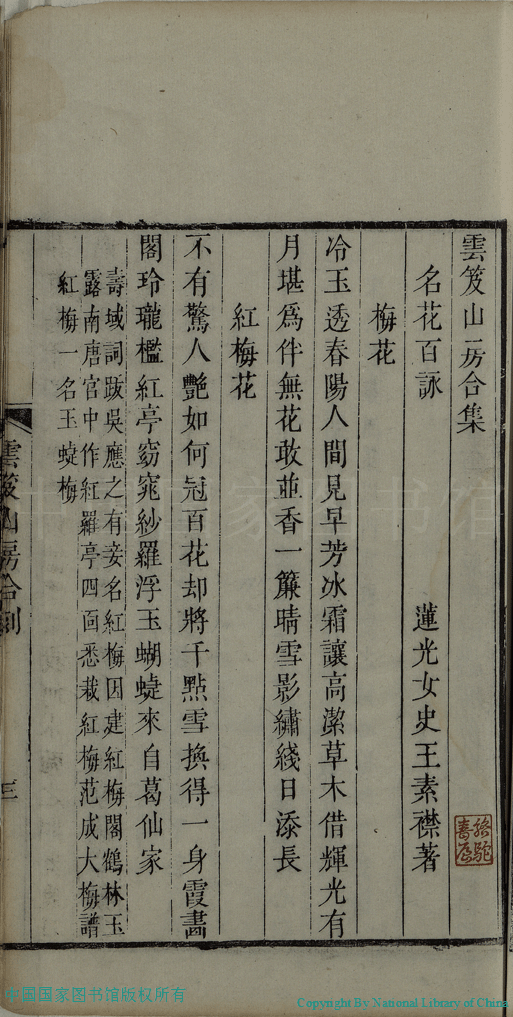 雲笈山房合集
名花百詠
蓮光女史王素襟著
梅花
冷玉透春陽人間見早芳冰霜讓高潔草木借輝光有
月堪爲伴無花敢並香一簾晴雪影繡綫日添長
紅梅花
不有驚人艷如何冠百花却將千點雪換得一身霞畵
閣玲瓏檻紅亭窈窕紗羅浮玉蝴蜨來自葛仙家
壽域詞䟦吳應之有妾名紅梅因建紅梅閣鶴林玉
露南唐宮中作紅羅亭四面悉栽紅梅范成大梅譜
紅梅一名玉蜨梅
雲笈山房合刻
三
中国国家图书馆版权所有
Copyright By National Library of China